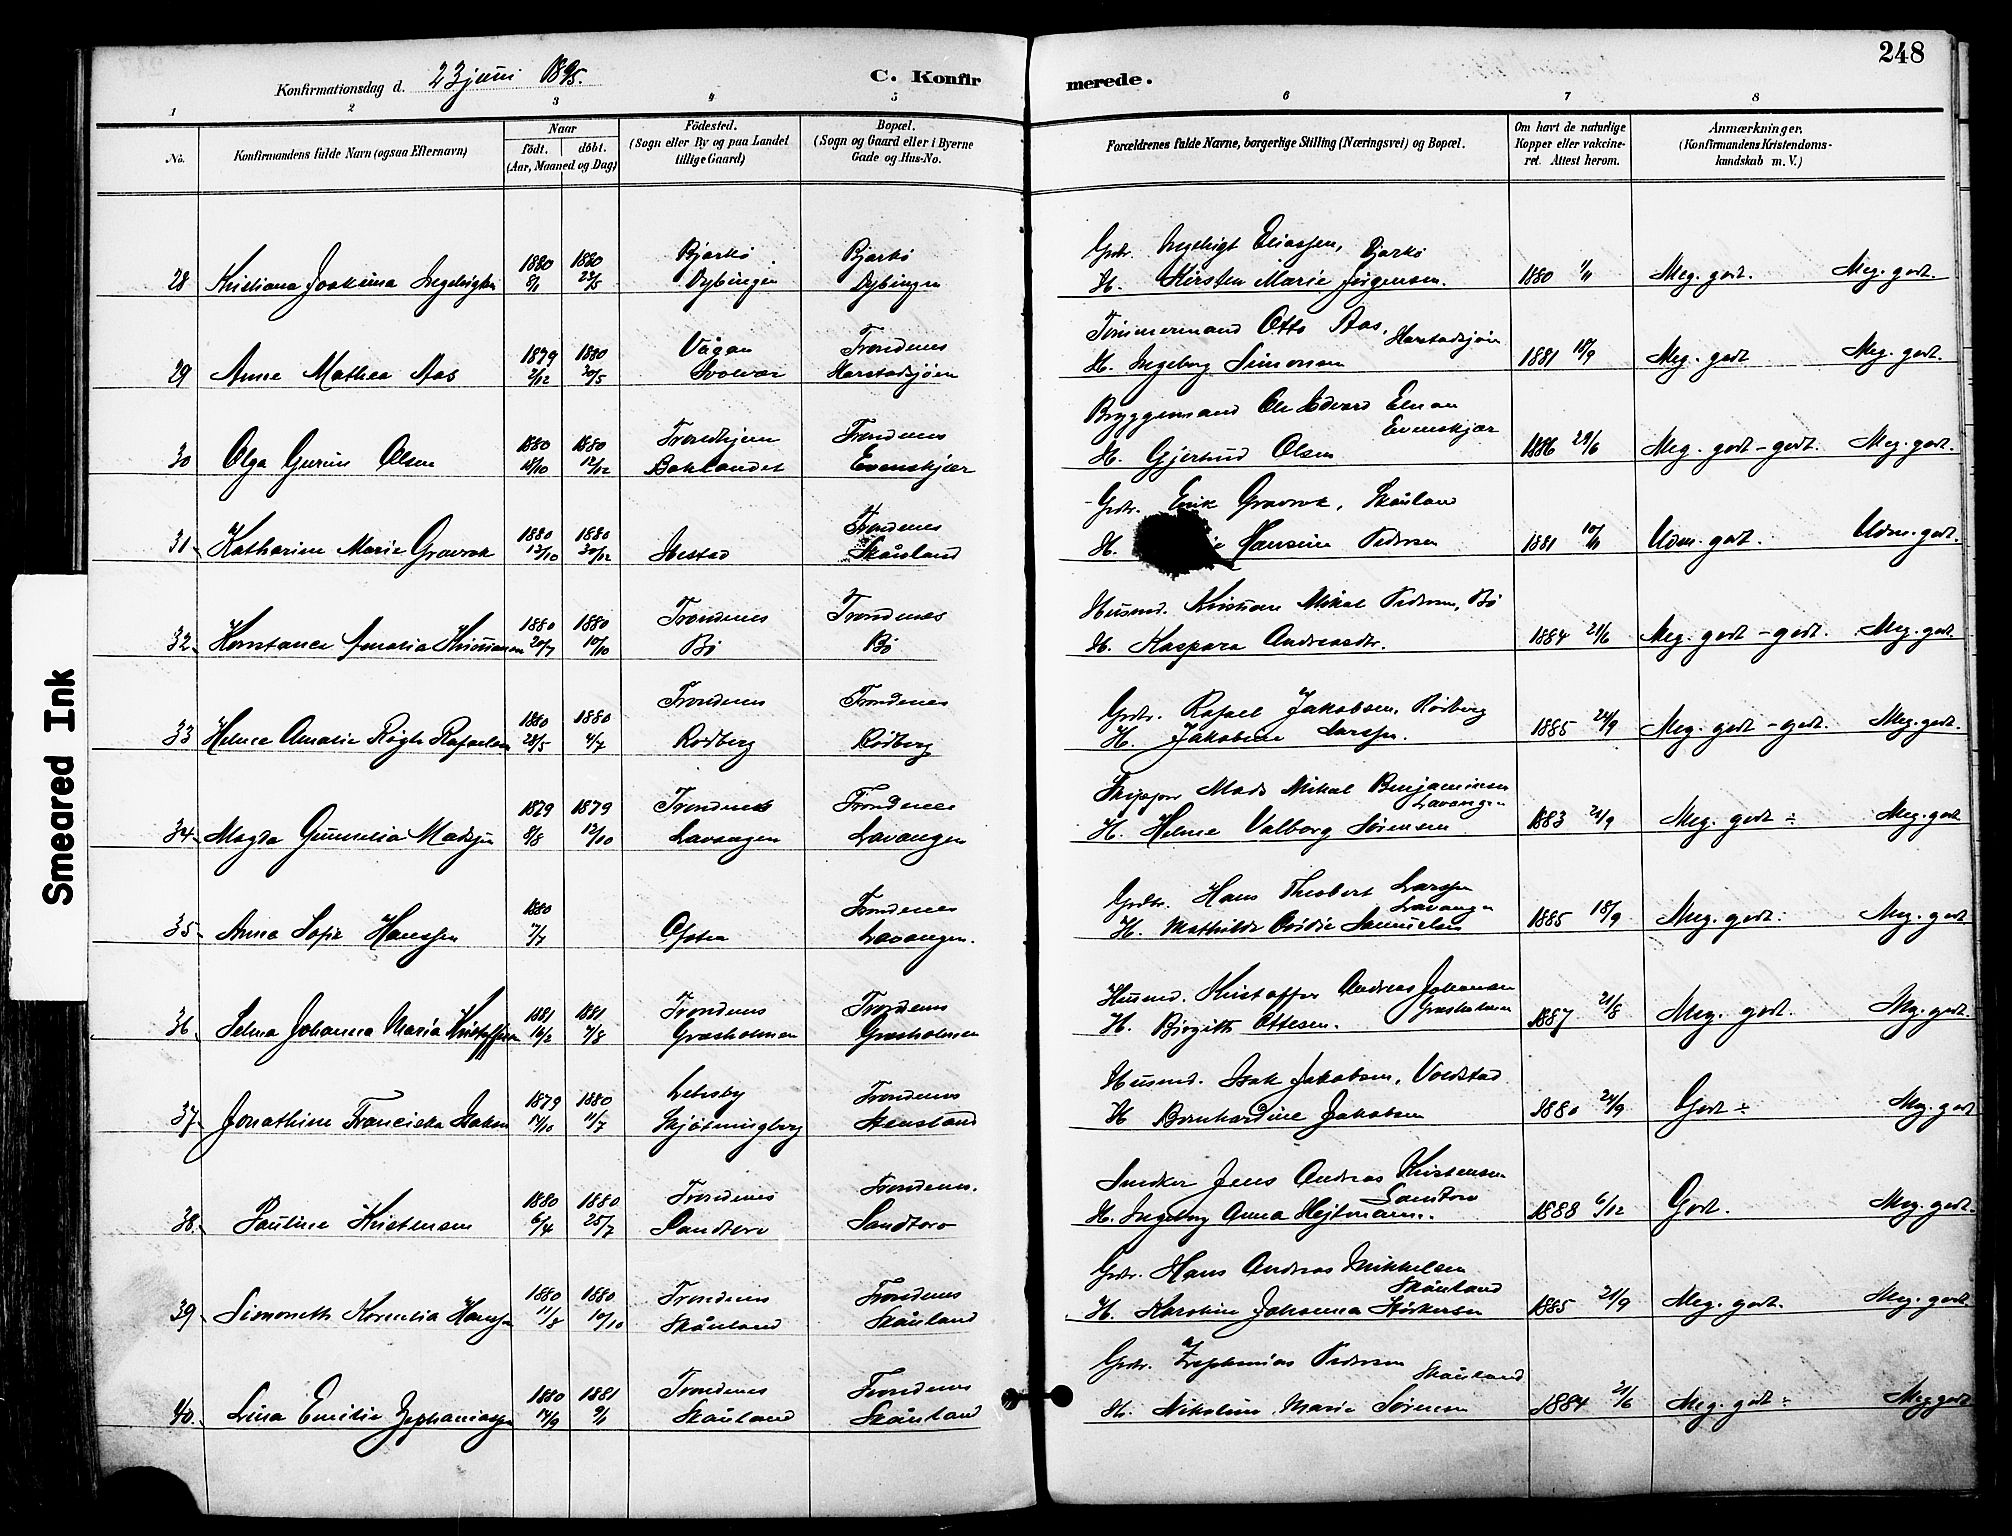 248
Konfirmationsdag d. 23 juni 1895.
C. Konfirmerede.
1 2 3 4 5 6 7 8
No.
Konfirmandens fulde Navn (ogsaa Efternavn)
Naar
födt. döbt.
(Aar, Maaned og Dag)
Födested.
(Sogn eller By og paa Landet
tillige Gaard)
Bopæl.
(Sogn og Gaard eller i Byerne
Gade og Hus-No.
Forældrenes fulde Navne, borgerlige Stilling (Næringsvei) og Bopæl.
Om havt de naturlige
Kopper eller vakcine-
ret. Attest herom.
Anmærkninger,
(Konfirmandens Kristendoms-
kundskab m. V.)
1880 1880 Bjarkö Bjarkö Grdr. Ingebrigt Eliassen, Bjarkö
28 Kristiana Joakima Ingebrigtsen 8/1 Dybingen Dybingen H. Kirsten Marie Jörgensen. 1880 Meg. godt. Meg. godt.
1879 1880 Vågan Trondenes Tömmermand Otto Aas, Harstadsjöen
29 Anne Mathea Aas 2/12 20/5 Svolvær Harstadsjöen H. Ingeborg Simonsen 1881 18/9 Meg. godt Meg. godt.
1880 1880 Trondhjem Trondenes Bryggemand Ole Edvard Evenskjær
30 Olga Gurine Olsen 18/10 12/12 Baklandet Evenskjær H. Gjertrud Olsen 1886 29/6 Meg. godt - godt. Meg. godt.
1880 1880 Trondenes Grdr. Erik Gravrok, Skånland
31. Katharine Marie Gravrok 13/10 30/12 Ibestad Skånland H. Hansine Pedersen 1881 10/11 Udm. godt. Udm. godt.
1880 1880 Trondenes Trondenes Husmd. Kristian Mikal Pedersen, Bö
32. Konstance Amalia Kristiansen 20/7 10/10 Bö Bö H. Kaspara Andreasdtr. 1884 21/6 Meg. godt - godt. Meg. godt.
1880 1880 Trondenes Trondenes Grdr. Rafael Jakobsen, Rödberg
33 Helmine Amalie Rafaelsen 28/5 4/7 Rödberg Rödberg H. Jakobine Larssen. 1885 24/9 Meg. godt - godt. Meg. godt.
1879 1879 Trondenes Trondenes Skipper Mads Mikal Benjaminsen Lavangen
34. Magda Madsen 8/8 12/10 Lavangen Lavangen H. Helene Valborg Sörensen 1883 21/9 Meg. godt ÷ Meg. godt
1880 Trondenes Grdr. Hans Theobert Larssen Lavangen
35. Anna Sofie Hanssen 7/7 Ofoten Lavangen. H. Mathilde Samuelsen 1885 18/9 Meg. godt: Meg. godt
1881 1881 Trondenes Trondenes Husmd. Kristoffer Andreas Johansen Græsholmen
36. Selma Johanna Maria Kristoffersen 16/2 7/8 Græsholmen Græsholmen H. Birgitte Ottesen. 1887 21/8 Meg. godt. Meg. godt.
1879 1880 Lebesby Trondenes Husmd. Isak Jakobsen, Voldstad
37. Jonathine Franciska Isaksen 14/10 11/7 Skjötningberg Stensland H Bernhardine Jakobsen 1880 24/9 Godt ÷ Meg. godt
1880 1880 Trondenes Trondenes. Snedker Jens Andreas Kristensen Sandtorv
38. Pauline Kristensen 6/4 25/7 Sandtorv Sandtorv H. Ingeborg Anna Hejtmann. 1888 6/12 Godt. Meg. godt.
1880 1880 Trondenes Trondenes Grdr. Hans Andreas Mikkelsen Skånland
39. Simoneth Kornelia Hanssen 11/8 10/10 Skånland Skånland H. Karoline Johanna Störkersen 1885 21/9 Meg. godt. Meg. godt
1880 1881 Trondenes Trondenes Grdr. Zephanias Pedersen Skånland
40. Lina Emilie Zephaniassen 14/9 9/1 Skånland Skånland H. Nikoline Marie Sörensen 1884 21/6 Meg. godt ÷ Meg. godt
Smeared Ink